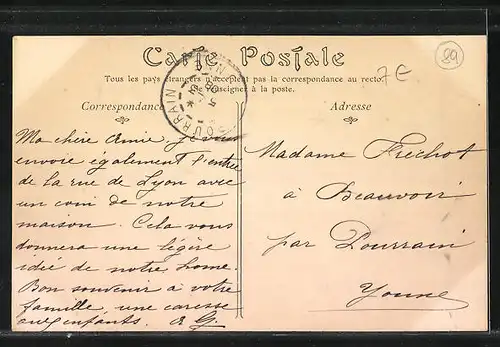 Carte Postale
Tous les pays étrangers n'acceptent pas la correspondance au recto.
Se renseigner à la poste.
89
7E
POURRAIN
Correspondance
Adresse
Ma chère Amie je vous
envoie également l'entrée
de la rue de Lyon avec
un coin de notre
maison. Cela vous
donnera une légère
idée de notre home.
Bon souvenir à votre
famille, une caresse
aux enfants. G.
Madame Frechot
à Beauvoir
par Pourrain
Yonne